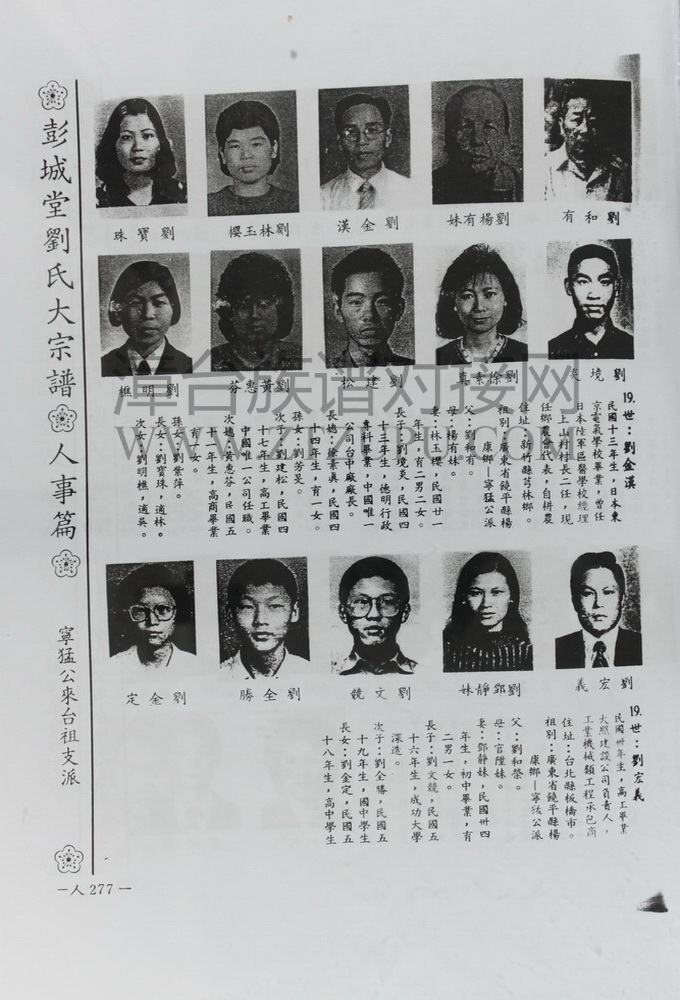 彭城堂劉氏大宗譜
人事篇
寧猛公來台祖支派
劉和有
劉楊有妹
劉金漢
劉林玉櫻
劉寶珠
劉境炎
劉徐素真
劉建松
劉黃惠芬
劉明樵
漳台族谱对接网
19.世：劉金漢
民國十三年生，日本東
京電氣學校畢業，曾任
日本陸軍區醫學校經理
，上山村村長二任，現
任鄉農會代表，自耕農
住址：新竹縣芎林鄉。
祖別：廣東省饒平縣楊
康鄉—寧猛公派
父：劉和有。
母：楊有妹。
妻：林玉櫻，民國廿一
年生，育二男二女。
長子：劉境炎，民國四
十三年生，德明行政
專科畢業，中國唯一
公司台中廠廠長。
長媳：徐素真，民國四
十四年生，育一女。
孫女：劉芳旻。
次子：劉建松，民國四
十七年生，高工畢業
中國唯一公司任職。
次媳：黃惠芬，民國五
十一年生，高商畢業
育一女。
孫女：劉紫萍。
長女：劉寶珠，適林。
次女：劉明樵，適吳。
劉宏義
劉鄧靜妹
劉文競
劉全勝
劉金定
19.世：劉宏義
民國卅年生，高工畢業
大熙建設公司負責人，
工業機械類工程承包商
住址：台北縣板橋市。
祖別：廣東省饒平縣楊
康鄉—寧猛公派
父：劉和榮。
母：官陞妹。
妻：鄧靜妹，民國卅四
年生，初中畢業，育
二男一女。
長子：劉文競，民國五
十六年生，成功大學
深造。
次子：劉全勝，民國五
十九年生，國中學生
長女：劉金定，民國五
十八年生，高中學生
—人277—